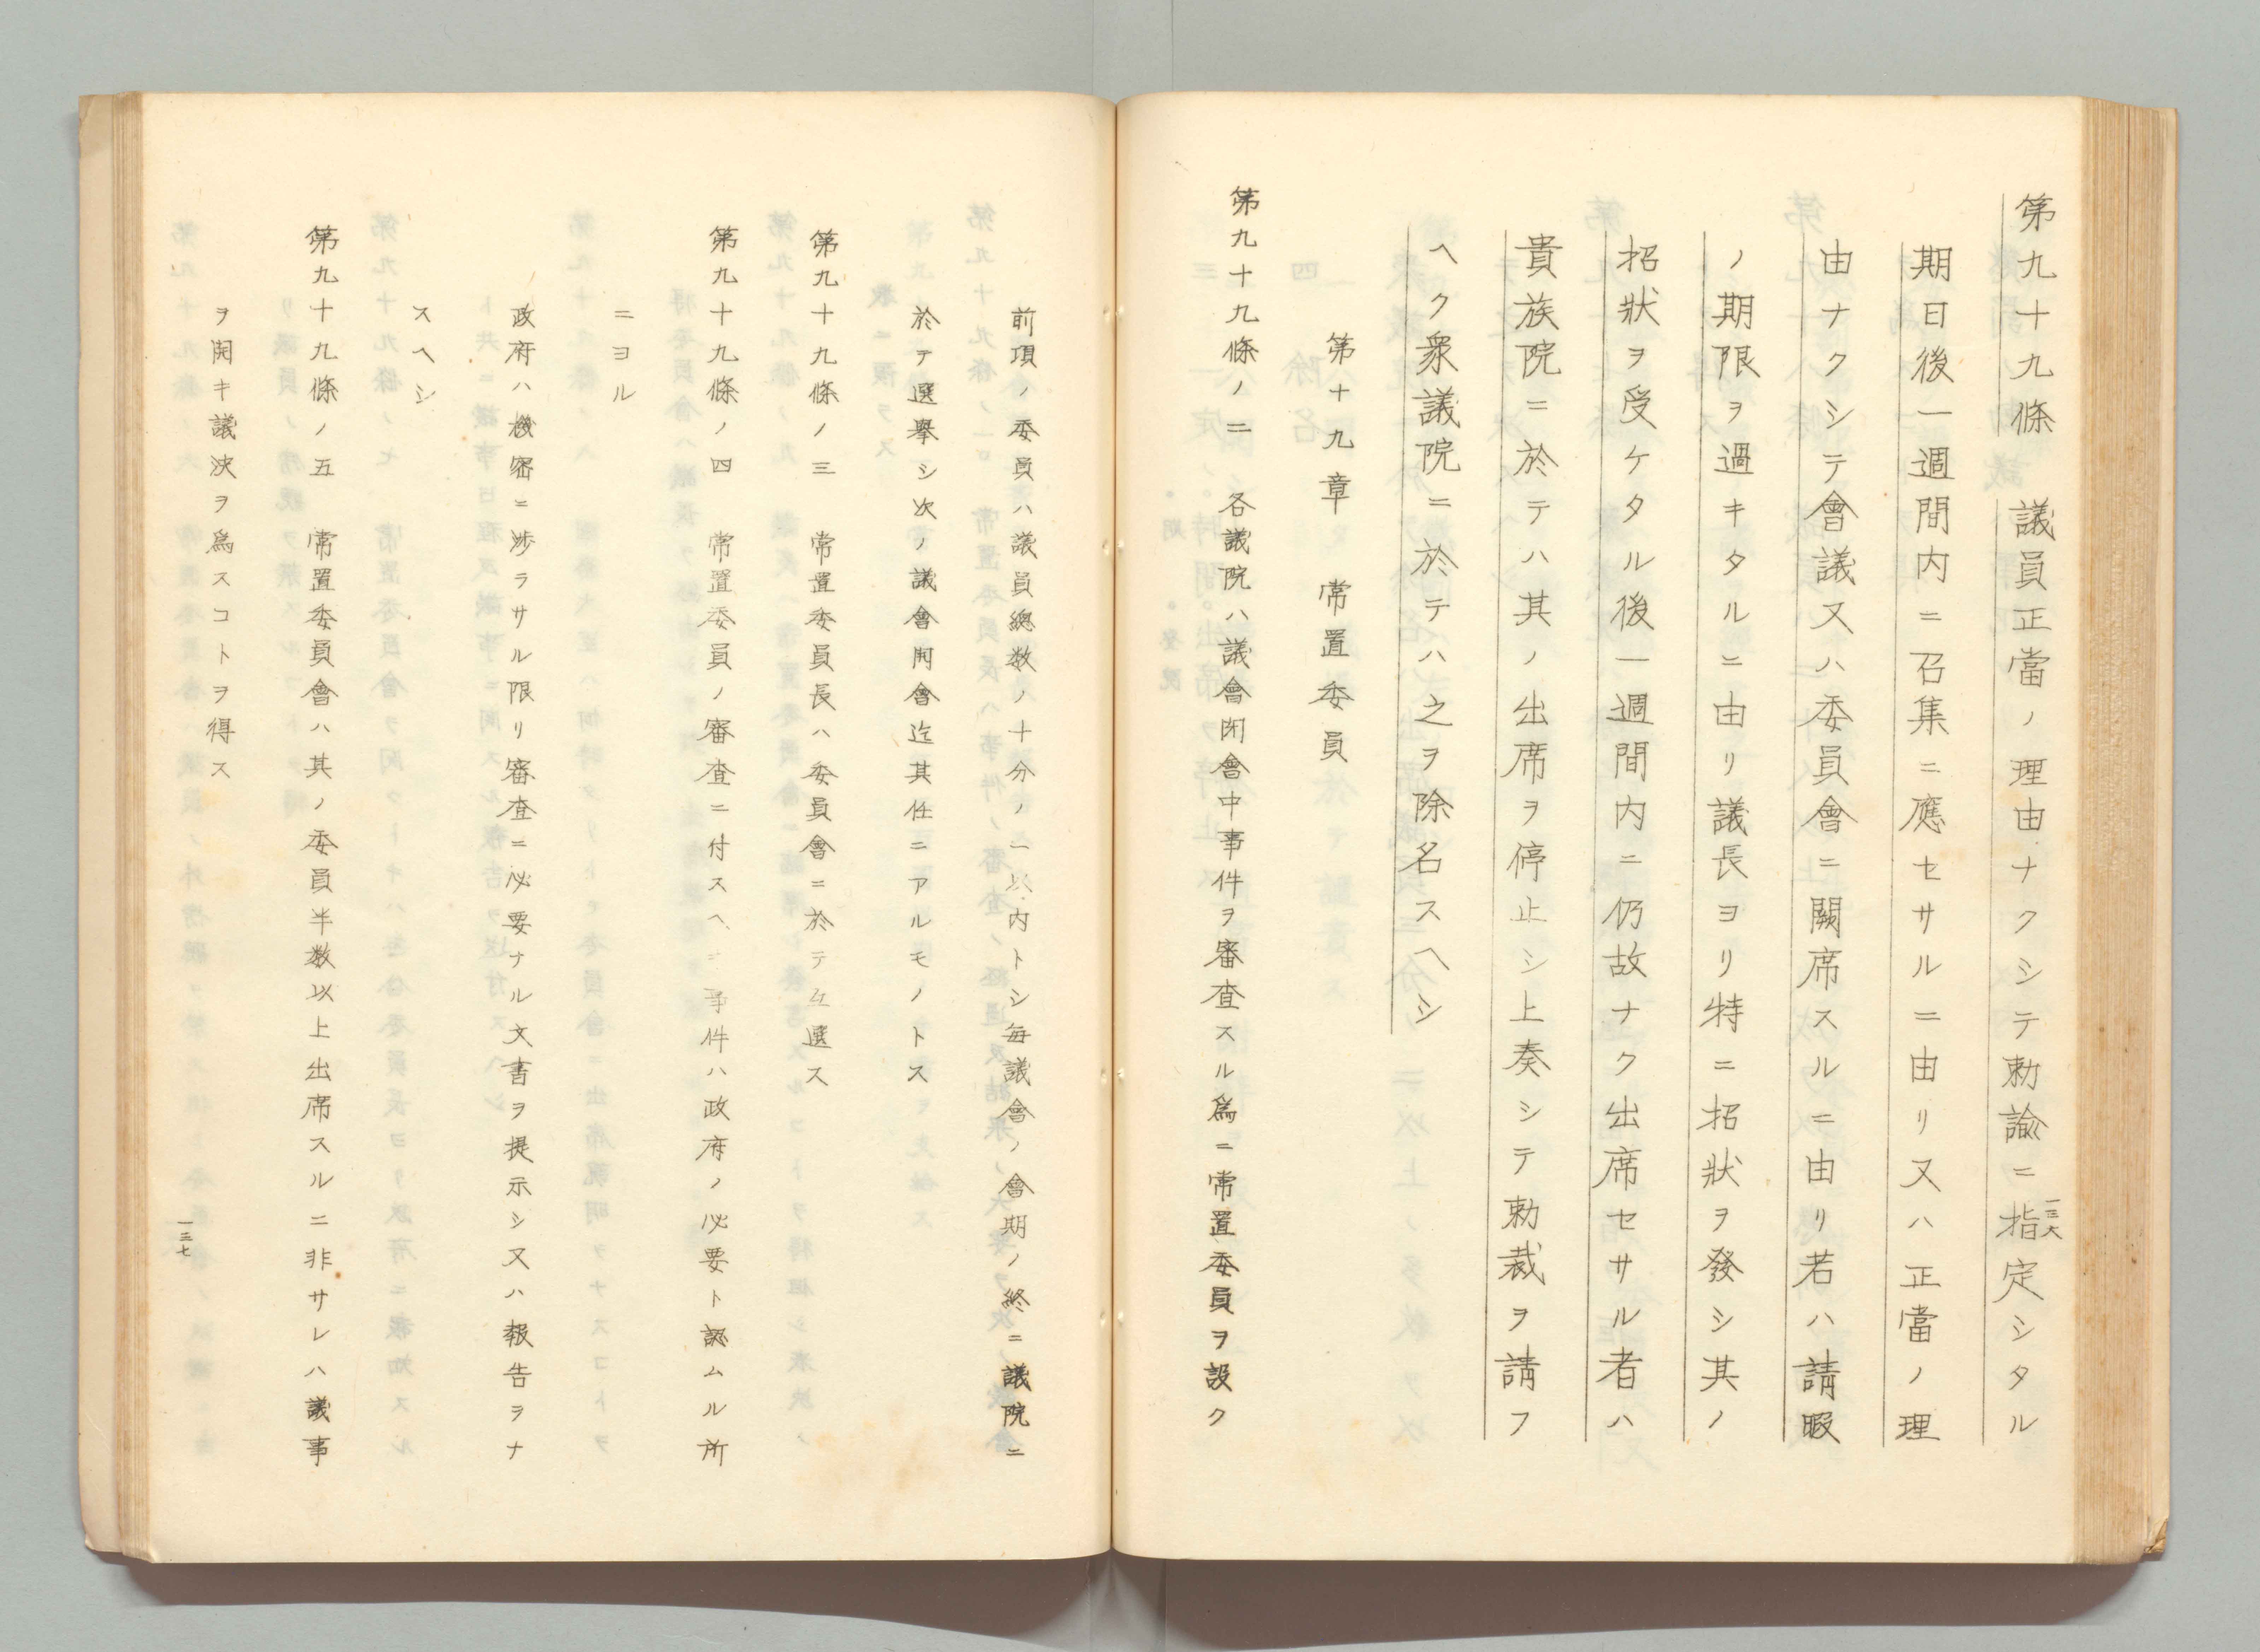 第九十九條　議員正當ノ理由ナクシテ勅諭ニ指定シタル
期日後一週間内ニ召集ニ應セサルニ由リ又ハ正當ノ理
由ナクシテ會議又ハ委員會ニ闕席スルニ由リ若ハ請暇
ノ期限ヲ過キタルニ由リ議長ヨリ特ニ招狀ヲ發シ其ノ
招狀ヲ受ケタル後一週間内ニ仍故ナク出席セサル者ハ
貴族院ニ於テハ其ノ出席ヲ停止シ上奏シテ勅裁ヲ請フ
ヘク衆議院ニ於テハ之ヲ除名スヘシ
第十九章　常置委員
第九十九條ノ二　各議院ハ議會閉會中事件ヲ審査スル爲ニ常置委員ヲ設ク
一三六
前項ノ委員ハ議員總数ノ十分ノ一以内トシ毎議會ノ會期ノ終ニ議院ニ
於テ選擧シ次ノ議會開會迄其任ニアルモノトス
第九十九條ノ三　常置委員長ハ委員會ニ於テ互選ス
第九十九條ノ四　常置委員ノ審査ニ付スヘキ事件ハ政府ノ必要ト認ムル所
ニヨル
政府ハ機密ニ渉ラサル限リ審査ニ必要ナル文書ヲ提示シ又ハ報告ヲナ
スヘシ
第九十九條ノ五　常置委員會ハ其ノ委員半数以上出席スルニ非サレハ議事
ヲ開キ議決ヲ爲スコトヲ得ス
一三七